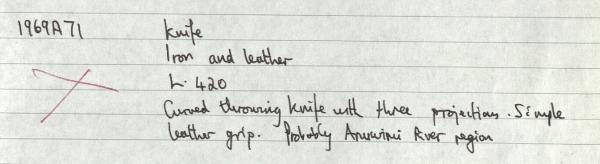 1969A71 Knife
Iron and leather
L. 420
Curved throwing knife with three projections. Simple
leather grip. Probably Aruwimi River region